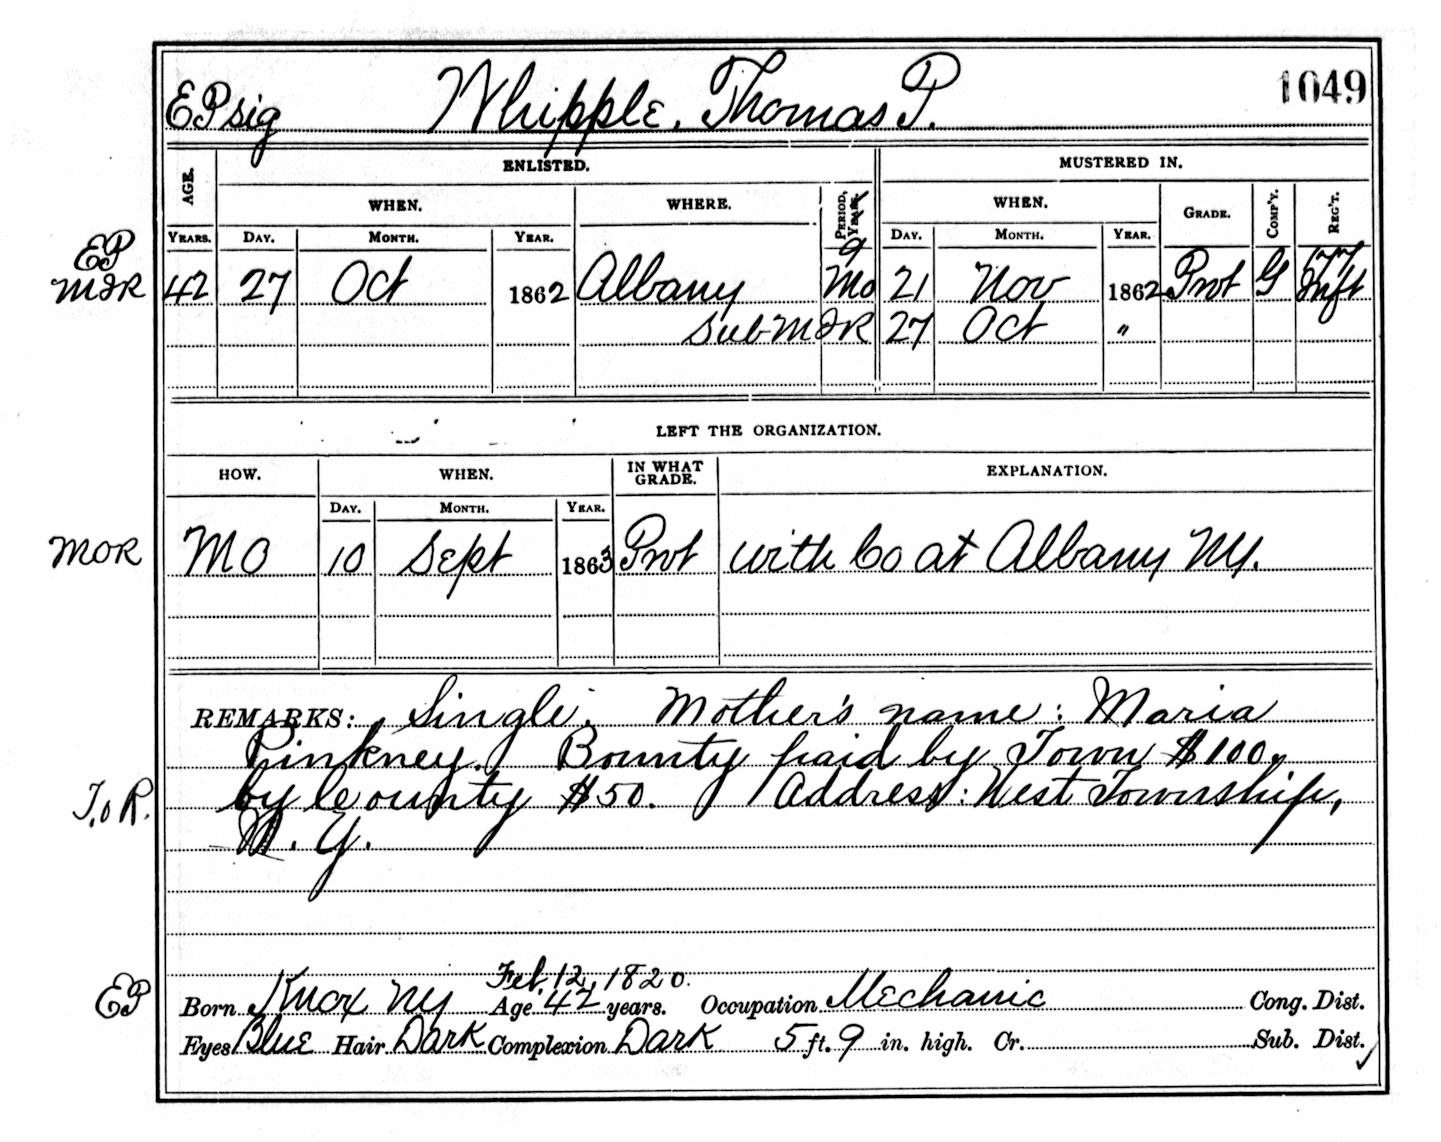 EP sig Whipple, Thomas P. 1049
ENLISTED. MUSTERED IN.
AGE. WHEN. WHERE. PERIOD, YEARS. WHEN. GRADE. COMP'Y. REG'T.
YEARS. DAY. MONTH. YEAR. DAY. MONTH. YEAR.
EP 9 177
MIR 42 27 Oct 1862 Albany Mo 21 Nov 1862 Pvt G Inft
Sub MIR 27 Oct "
LEFT THE ORGANIZATION.
HOW. WHEN. IN WHAT GRADE. EXPLANATION.
DAY. MONTH. YEAR.
MOR MO 10 Sept 1863 Pvt with Co at Albany NY.
REMARKS: Single. Mother's name: Maria
Pinkney. Bounty paid by Town $100.
by County $50. Address: West Township,
T.o R. N. Y.
Feb. 12, 1820.
EP Born Knox NY Age 42 years. Occupation Mechanic Cong. Dist.
Eyes Blue Hair Dark Complexion Dark 5 ft. 9 in. high. Cr. Sub. Dist.